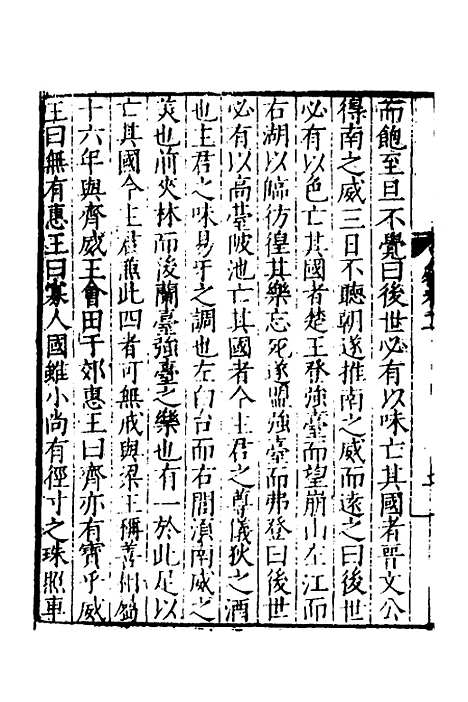 而飽至旦不覺曰後世必有以味亡其國者晉文公
得南之威三日不聽朝遂推南之威而遠之曰後世
必有以色亡其國者楚王登強臺而望崩山左江而
右湖以臨彷徨其樂忘死遂盟強臺而弗登曰後世
必有以高臺陂池亡其國者今主君之尊儀狄之酒
也主君之味易牙之調也左白台而右閭湏南威之
美也前夾林而後蘭臺強臺之樂也有一於此足以
亡其國今主君兼此四者可無戒與梁王稱善相屬
十六年與齊威王會田于郊惠王曰齊亦有寶乎威
王曰無有惠王曰寡人國雖小尚有徑寸之珠照車